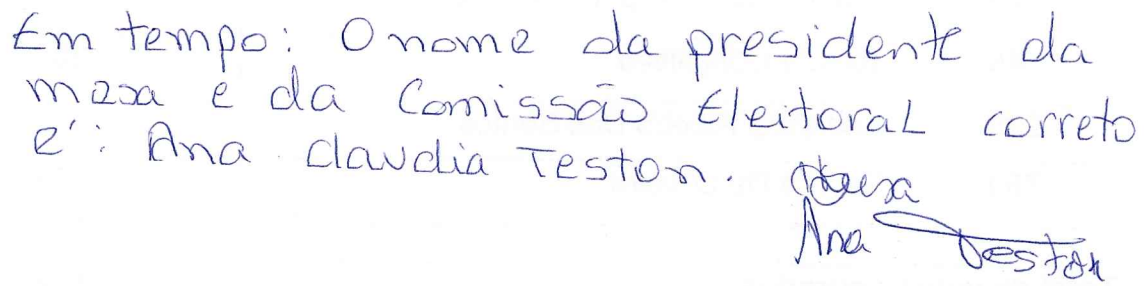 Em tempo: O nome da presidente da
mesa e da Comissão Eleitoral correto
é: Ana Claudia Teston.
Ana Teston